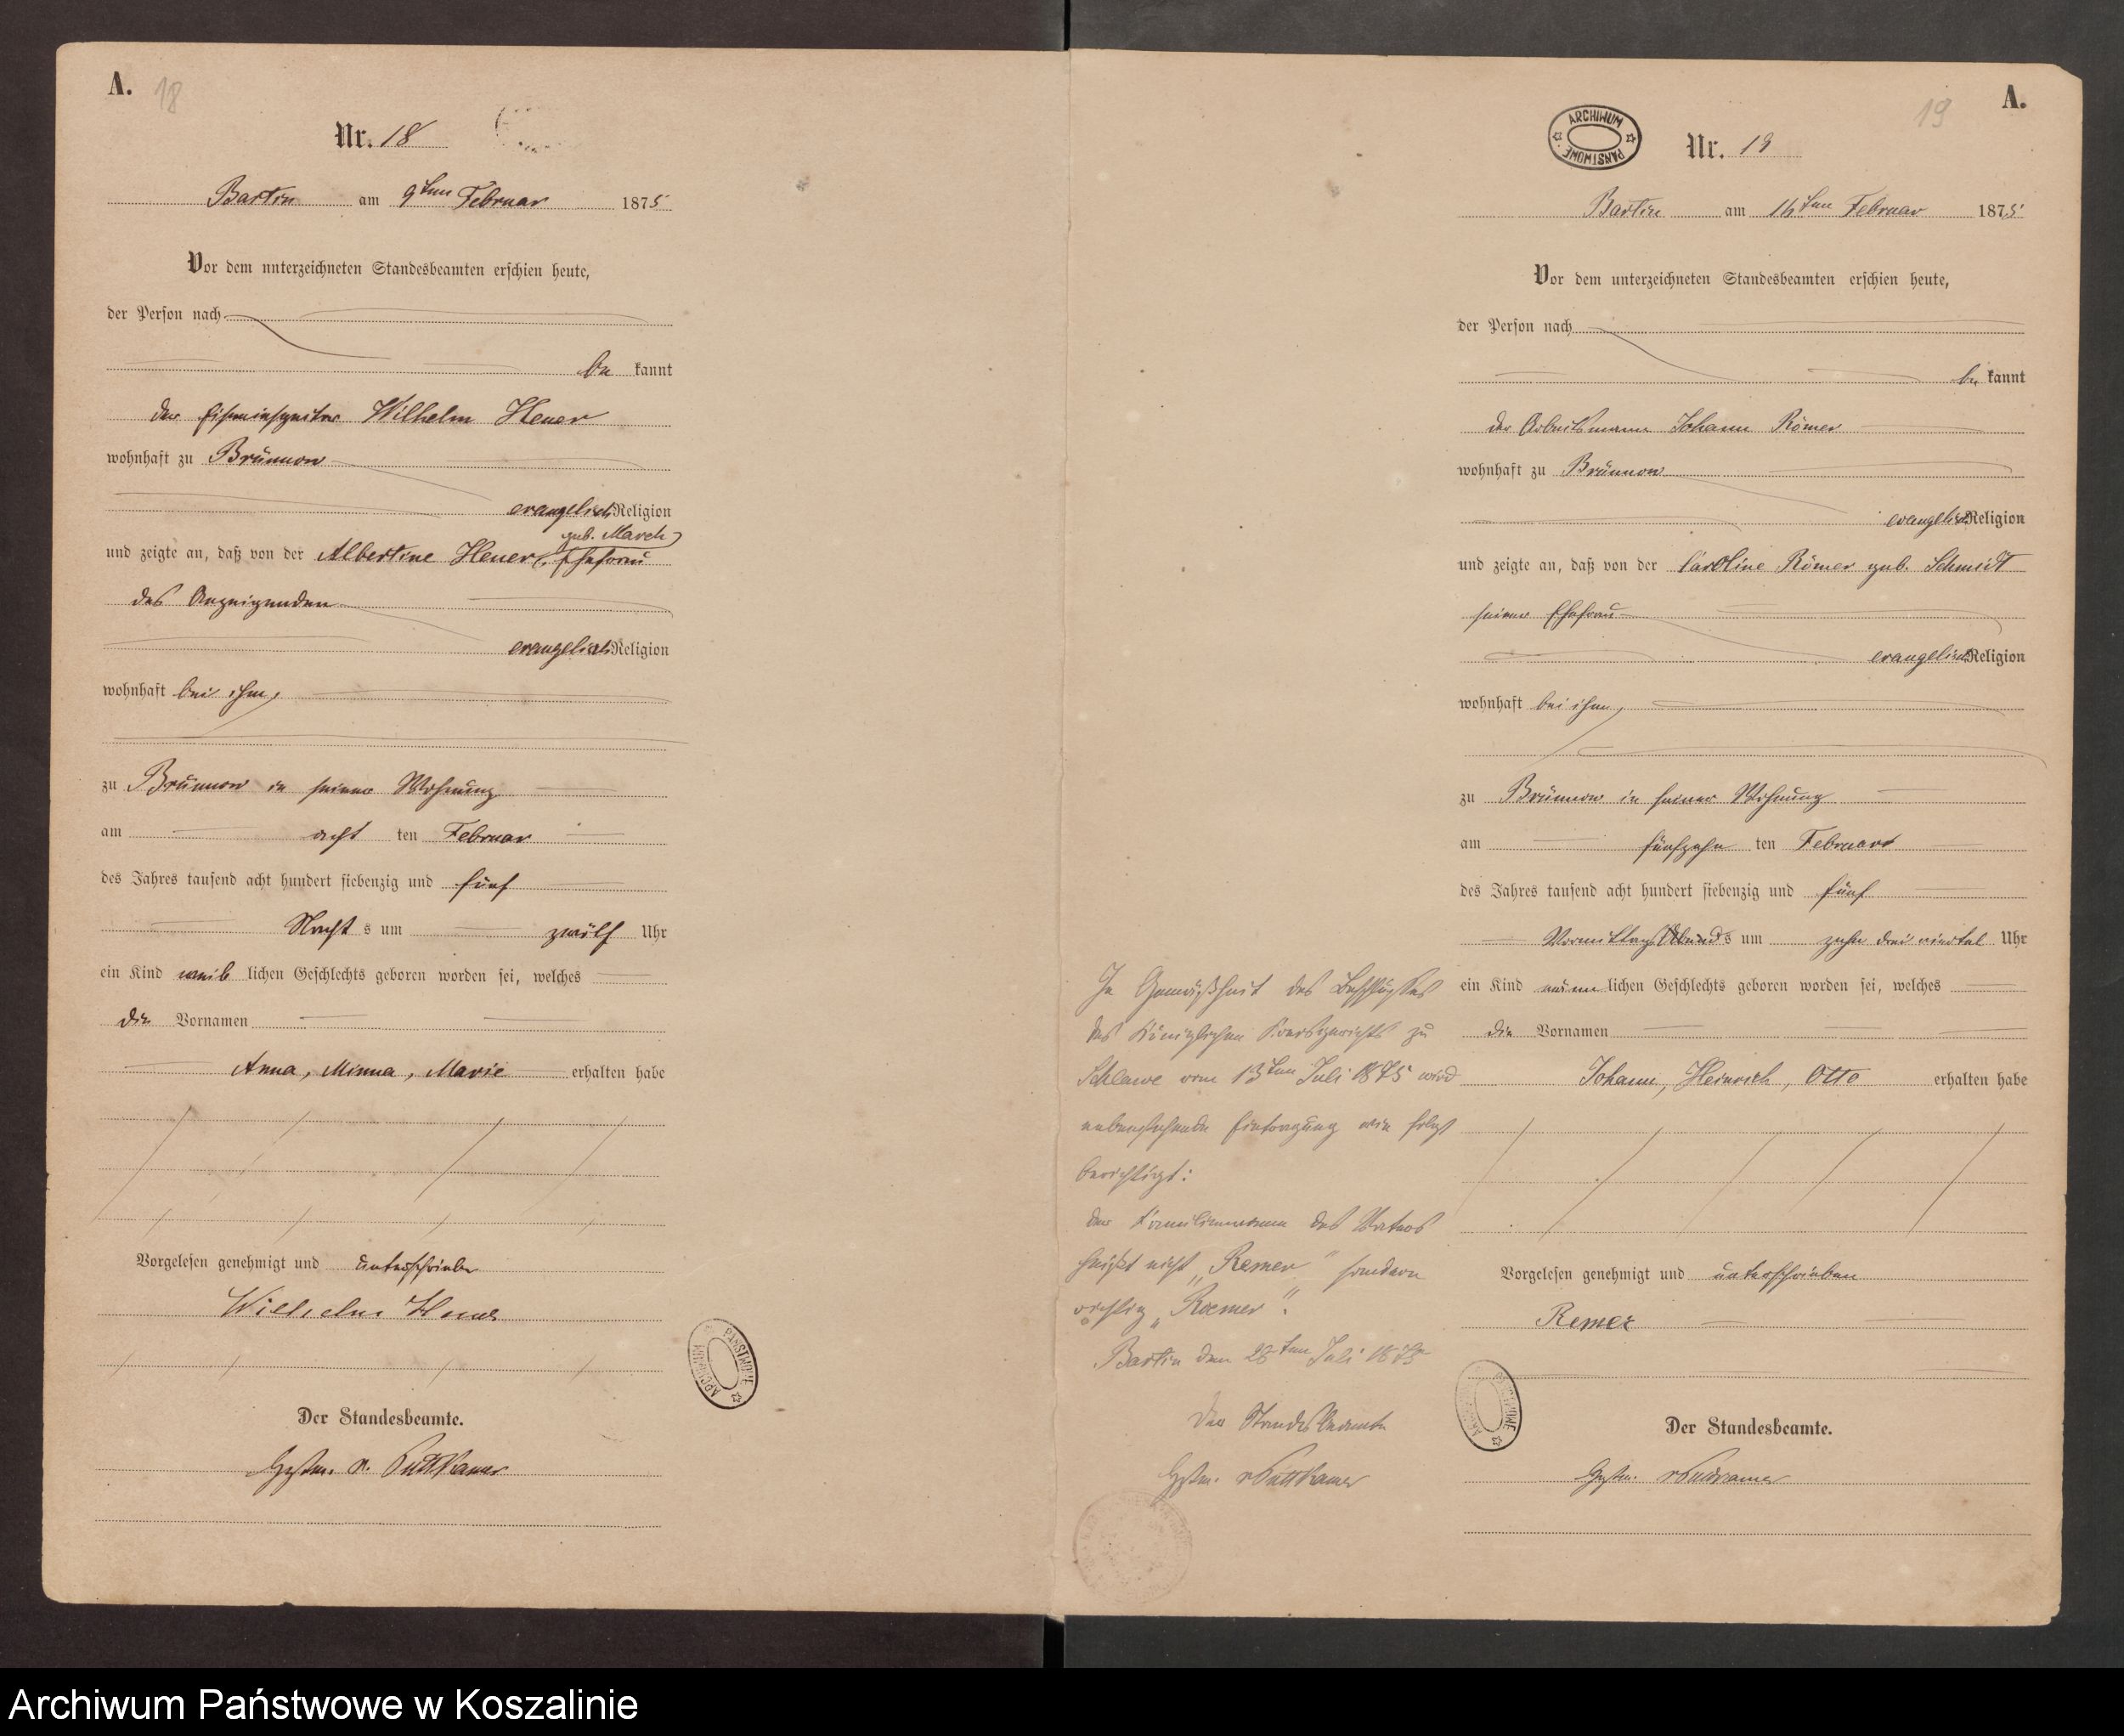 A. 18
Nr. 18
Bartin am 9ten Februar 1875
Vor dem unterzeichneten Standesbeamten erschien heute,
der Person nach
be kannt
der Wilhelm Heuer
wohnhaft zu Brünnow
evangelisch Religion
geb. March)
und zeigte an, daß von der Albertine Heuer (, Ehefrau
des Anzeigenden
evangelisch Religion
wohnhaft bei ihm,
zu Brünnow in seiner Wohnung
am acht ten Februar
des Jahres tausend acht hundert siebenzig und fünf
Nacht s um zwölf Uhr
ein Kind weib lichen Geschlechts geboren worden sei, welches
die Vornamen
Anna, Minna, Marie erhalten habe
Vorgelesen genehmigt und unterschrieben
Wilhelm Heuer
Der Standesbeamte.
v. Puttkamer
ARCHIWUM PAŃSTWOWE
19 A.
ARCHIWUM PAŃSTWOWE
Nr. 19
Bartin am 16ten Februar 1875
Vor dem unterzeichneten Standesbeamten erschien heute,
der Person nach
be kannt
der Arbeitsmann Johann Römer
wohnhaft zu Brünnow
evangelisch Religion
und zeigte an, daß von der Caroline Römer geb. Schmidt
seiner Ehefrau
evangelisch Religion
wohnhaft bei ihm,
zu Brünnow in seiner Wohnung
am fünfzehn ten Februar
des Jahres tausend acht hundert siebenzig und fünf
Vormittags Abends um zehn drei viertel Uhr
ein Kind männ lichen Geschlechts geboren worden sei, welches
die Vornamen
Johann, Heinrich, Otto erhalten habe
Vorgelesen genehmigt und unterschrieben
Remer
Der Standesbeamte.
vPuttkamer
In Gemäßheit des Beschlusses
des Königlichen Kreisgerichts zu
Schlawe vom 13ten Juli 1875 wird
nebenstehende Eintragung wie folgt
berichtigt:
der Familienname des Vaters
heißt nicht „Remer" sondern
richtig „Roemer".
Bartin den 28ten Juli 1875
Der Standesbeamte
vPuttkamer
ARCHIWUM PAŃSTWOWE
Archiwum Państwowe w Koszalinie